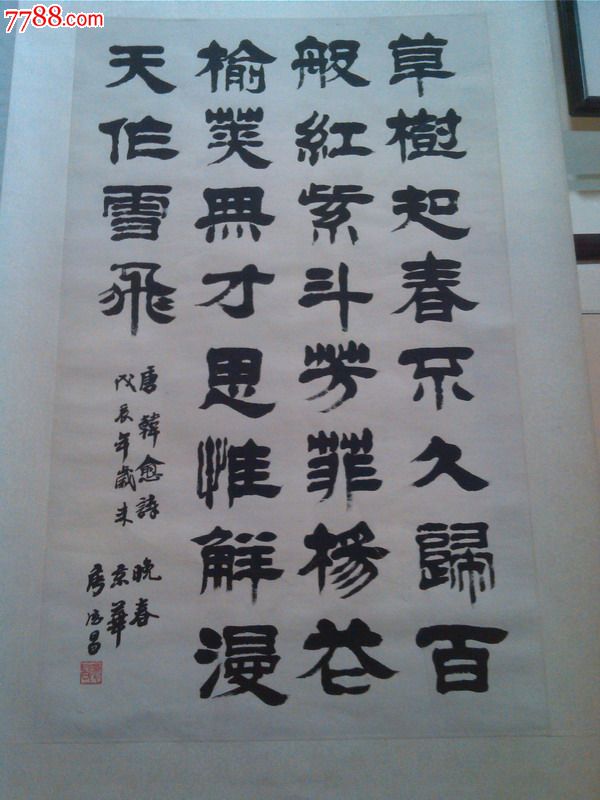 7788.com
草樹知春不久歸百
般紅紫斗芳菲楊花
榆莢無才思惟解漫
天作雪飛
唐韓愈詩 晚春
戊辰年歲末 京華
昌